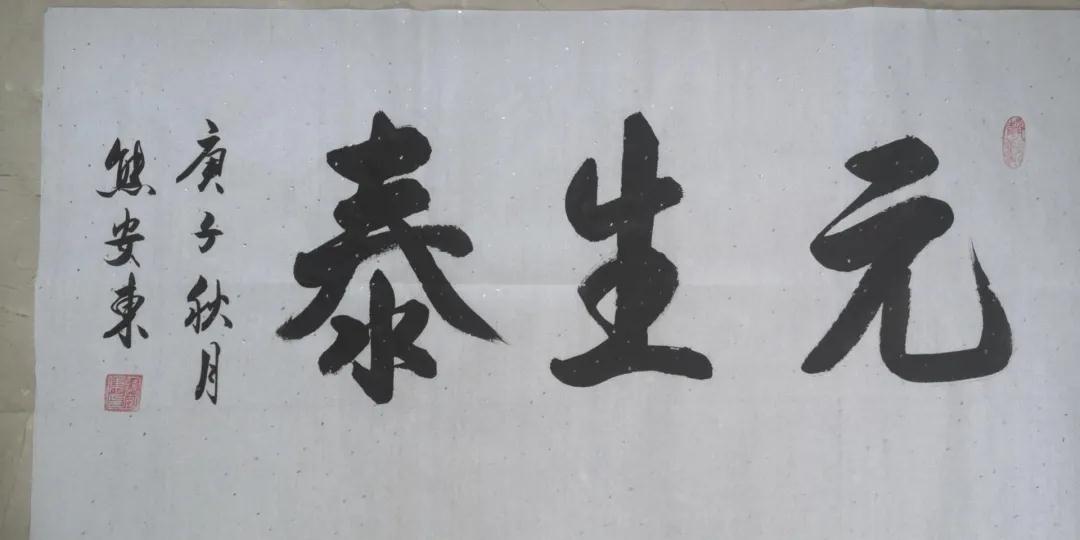 元生泰
庚子秋月
熊安東